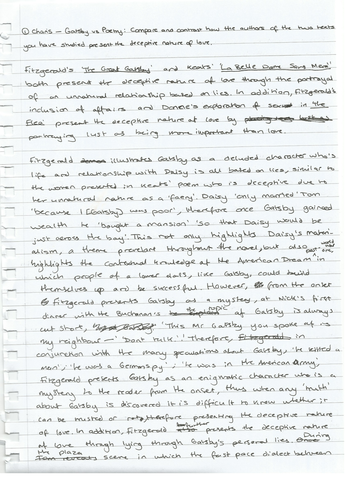 ① Chars – Gatsby vs Poetry: Compare and contrast how the authors of the two texts
you have studied present the deceptive nature of love.
Fitzgerald's 'The Great Gatsby' and Keats' 'La Belle Dame Sans Merci'
both present the deceptive nature of love through the portrayal
of an unnatural relationship based on lies. In addition, Fitzgerald's
inclusion of affairs and Donne's exploration of in 'The
Flea' present the deceptive nature of love by
portraying lust as being more important than love.
Fitzgerald illustrates Gatsby as a deluded character who's
life and relationship with Daisy is all based on lies, similar to
the woman presented in Keats' poem who is deceptive due to
her unnatural nature as a 'faery'. Daisy 'only married' Tom
'because I [Gatsby] was poor', therefore once Gatsby gained
wealth he 'bought a mansion' 'so that Daisy would be
just across the bay.' This not only highlights Daisy's materi-
alism, a theme prevalent throughout the novel, but also
highlights the contextual knowledge of the American Dream in
which people of a lower class, like Gatsby, could build
themselves up and be successful. However, from the onset
Fitzgerald presents Gatsby as a mystery, at Nick's first
dinner with the Buchanan's the topic of Gatsby is always
cut short, 'This Mr Gatsby you spoke of is
my neighbour –' 'Don't talk'. Therefore, in
conjunction with the many speculations about Gatsby, 'he killed a
man', 'he was a German spy', 'he was in the American Army',
Fitzgerald presents Gatsby as an enigmatic character who is a
mystery to the reader from the onset, thus when any 'truth'
about Gatsby is discovered it is difficult to know whether it
can be trusted or not, therefore presenting the deceptive nature
of love. In addition, Fitzgerald presents the deceptive nature
of love through lying through Gatsby's personal lies. During
the plaza scene in which the fast pace dialect between